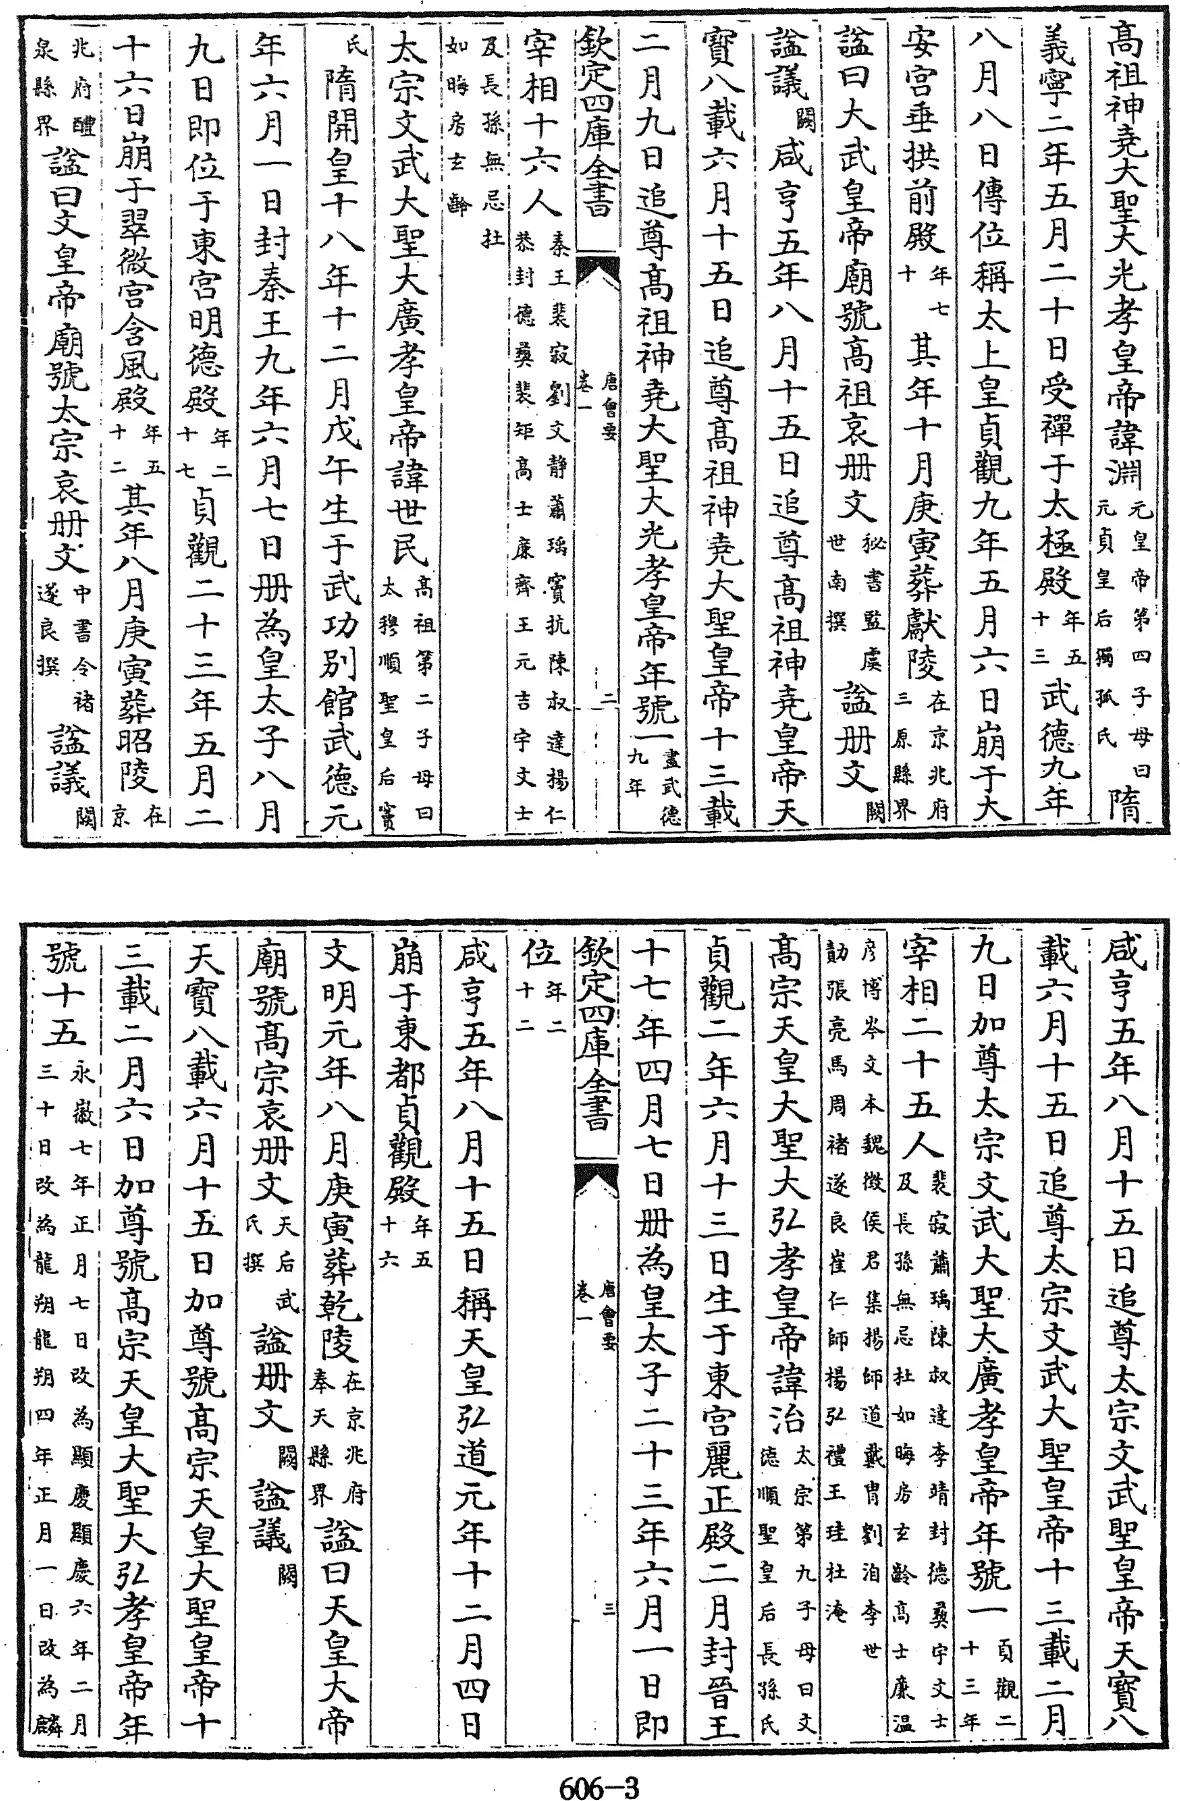 高祖神堯大聖大光孝皇帝諱淵元皇帝第四子母曰元貞皇后獨孤氏隋
義寧二年五月二十日受禪于太極殿年五十三武德九年
八月八日傳位稱太上皇貞觀九年五月六日崩于大
安宫垂拱前殿年七十其年十月庚寅葬獻陵在京兆府三原縣界
諡曰大武皇帝廟號高祖哀册文秘書監虞世南撰諡册文闕
諡議闕咸亨五年八月十五日追尊高祖神堯皇帝天
寳八載六月十五日追尊高祖神堯大聖皇帝十三載
二月九日追尊高祖神堯大聖大光孝皇帝年號一盡武德九年
欽定四庫全書 唐會要 卷一 二
宰相十六人秦王裴寂劉文静蕭瑀竇抗陳叔達楊仁恭封德彛裴矩高士廉齊王元吉宇文士
及長孫無忌杜如晦房玄齡
太宗文武大聖大廣孝皇帝諱世民高祖第二子母曰太穆順聖皇后竇
氏隋開皇十八年十二月戊午生于武功别館武德元
年六月一日封秦王九年六月七日册為皇太子八月
九日即位于東宫明德殿年二十七貞觀二十三年五月二
十六日崩于翠微宫含風殿年五十二其年八月庚寅葬昭陵在京
兆府醴泉縣界諡曰文皇帝廟號太宗哀册文中書令褚遂良撰諡議闕
咸亨五年八月十五日追尊太宗文武聖皇帝天寳八
載六月十五日追尊太宗文武大聖皇帝十三載二月
九日加尊太宗文武大聖大廣孝皇帝年號一貞觀二十三年
宰相二十五人裴寂蕭瑀陳叔達李靖封德彛宇文士及長孫無忌杜如晦房玄齡高士廉温
彦博岑文本魏徴侯君集楊師道戴胄劉洎李世勣張亮馬周褚遂良崔仁師楊弘禮王珪杜淹
高宗天皇大聖大弘孝皇帝諱治太宗第九子母曰文德順聖皇后長孫氏
貞觀二年六月十三日生于東宫麗正殿二月封晉王
十七年四月七日册為皇太子二十三年六月一日即
欽定四庫全書 唐會要 卷一 三
位年二十二
咸亨五年八月十五日稱天皇弘道元年十二月四日
崩于東都貞觀殿年五十六
文明元年八月庚寅葬乾陵在京兆府奉天縣界諡曰天皇大帝
廟號高宗哀册文天后武氏撰諡册文闕諡議闕
天寳八載六月十五日加尊號高宗天皇大聖皇帝十
三載二月六日加尊號高宗天皇大聖大弘孝皇帝年
號十五永徽七年正月七日改為顯慶顯慶六年二月三十日改為龍朔龍朔四年正月一日改為麟
606-3